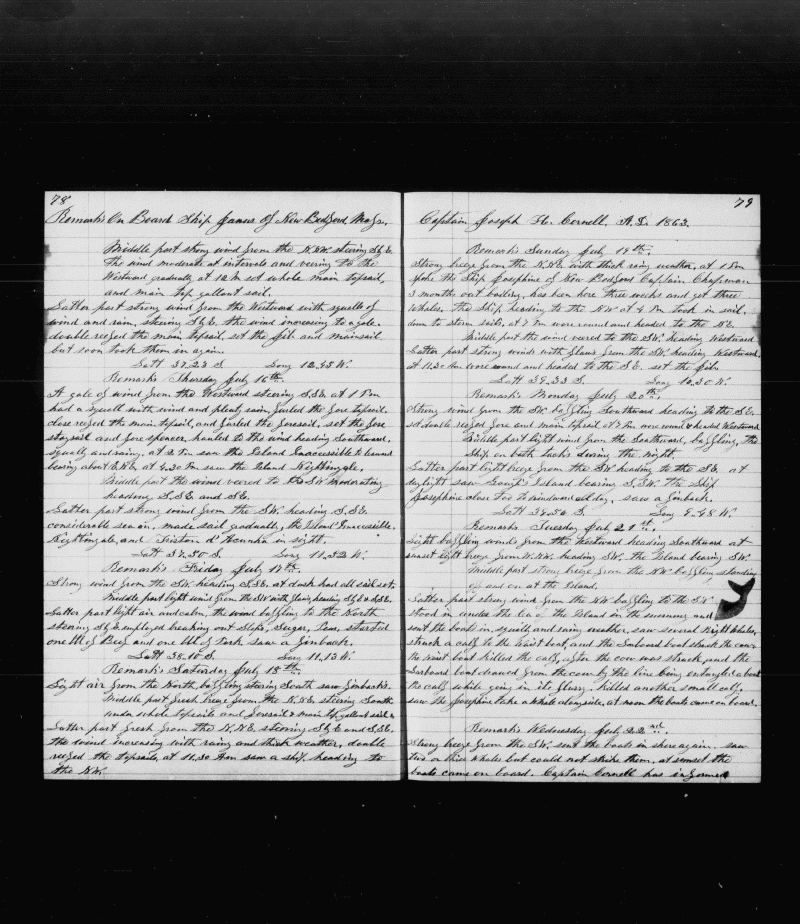 78
Remarks On Board Ship Janus Of New Bedford Mass.
Middle part strong wind from the N.NW. steering S by E.
the wind moderate at intervals and veering to the
Westward gradually at 12 M set whole main topsail,
and main top gallant sail.
Latter part strong wind from the Westward with squalls of
wind and rain, steering S by E. the wind increasing to a gale.
double reefed the main topsail, set the jib and mainsail
but soon took them in again.
Latt 37.23 S Long 12.45 W.
Remarks Thursday July 16th.
A gale of wind from the Westward steering S.SE. at 1 PM
had a squall with wind and plenty rain, furled the fore topsail
close reefed the main topsail, and furled the foresail, set the fore
staysail and fore spencer, hauled to the wind heading Southward,
squally and rainy, at 2 PM saw the Island Inaccessible to leeward
bearing about E.NE. at 4.30 PM saw the Island Nightingale.
Middle part the wind veered to the SW moderating
heading S.SE and SE.
Latter part strong wind from the SW. heading S.SE.
considerable sea on, made sail gradually, the Island Inaccessible.
Nightingale, and Tristan d'Acunha in sight.
Latt 37.50 S. Long 11.32 W.
Remarks Friday July 17th.
Strong wind from the SW. heading S.SE. at dark had all sail set.
Middle part light wind from the SW with flaws, heading S by E & S.SE.
Latter part light air and calm, the wind baffling to the North
steering S by E. employed breaking out Slops, Sugar, Peas, started
one bbl of Beef and one bbl of Pork saw a finback.
Latt 38.10 S. Long 11.13 W.
Remarks Saturday July 18th.
Light air from the North, baffling, steering South saw finbacks.
Middle part fresh breeze from the N.NE. steering South
under whole topsails and foresail & main top gallant sail
Latter part fresh from the N.NE. steering S by E and S.SE.
the wind increasing with rainy and thick weather, double
reefed the topsails, at 11.30 AM saw a ship, heading to
the NW.
79
Captain Joseph H. Cornell. A.D. 1863.
Remarks Sunday July 19th.
Strong breeze from the N.NE. with thick rainy weather, at 1 PM
spoke the Ship Josephine of New Bedford Captain Chapman
3 months out boiling, has been here three weeks and got three
whales. the Ship heading to the NW at 4 PM took in sail.
down to storm sails, at 7 PM wore round and headed to the NE.
Middle part the wind veered to the SW. heading Westward
Latter part strong winds with flaws from the SW. heading Westward.
at 11.30 AM wore round and headed to the SE. set the jib.
Latt 39.33 S. Long 10.30 W.
Remarks Monday July 20th.
Strong wind from the SW. baffling Southward heading to the SE.
set double reefed fore and main topsail at 7 PM wore round & headed Westward
Middle part light wind from the Southward, baffling, the
Ship on both tacks during the night.
Latter part light breeze from the SW heading to the SE. at
daylight saw Gough's Island bearing S.SW. the Ship
Josephine close too to windward all day, saw a finback.
Latt 39.56 S. Long 9.48 W.
Remarks Tuesday July 21st.
Light baffling winds from the Westward heading Southward at
sunset light breeze from W.NW. heading SW. the Island bearing SW.
Middle part strong breeze from the NW. baffling, standing
off and on at the Island.
Latter part strong wind from the NW baffling to the SW.
stood in under the Lee of the Island in the morning and
sent the boats in, squally and rainy weather, saw several right whales,
struck a calf to the waist boat, and the Larboard boat struck the cow &
the waist boat killed the calf, after the cow was struck, and the
Larboard boat drawed from the cow by the line being entangled about
the calf while going in its flurry, killed another small calf.
saw the Josephine take a whale alongside, at noon the boats came on board.
Remarks Wednesday July 22nd.
Strong breeze from the SW. sent the boats in shore again. saw
two or three whales but could not strike them, at sunset the
boats came on board. Captain Cornell has informed